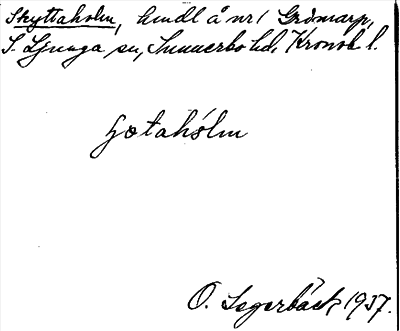 Skyttaholm, hmdl å nr 1 Grömarp,
S. Ljunga sn, Sunnerbo hd, Kronob. l.
ʃotahólm
O. Segerbäck 1937.